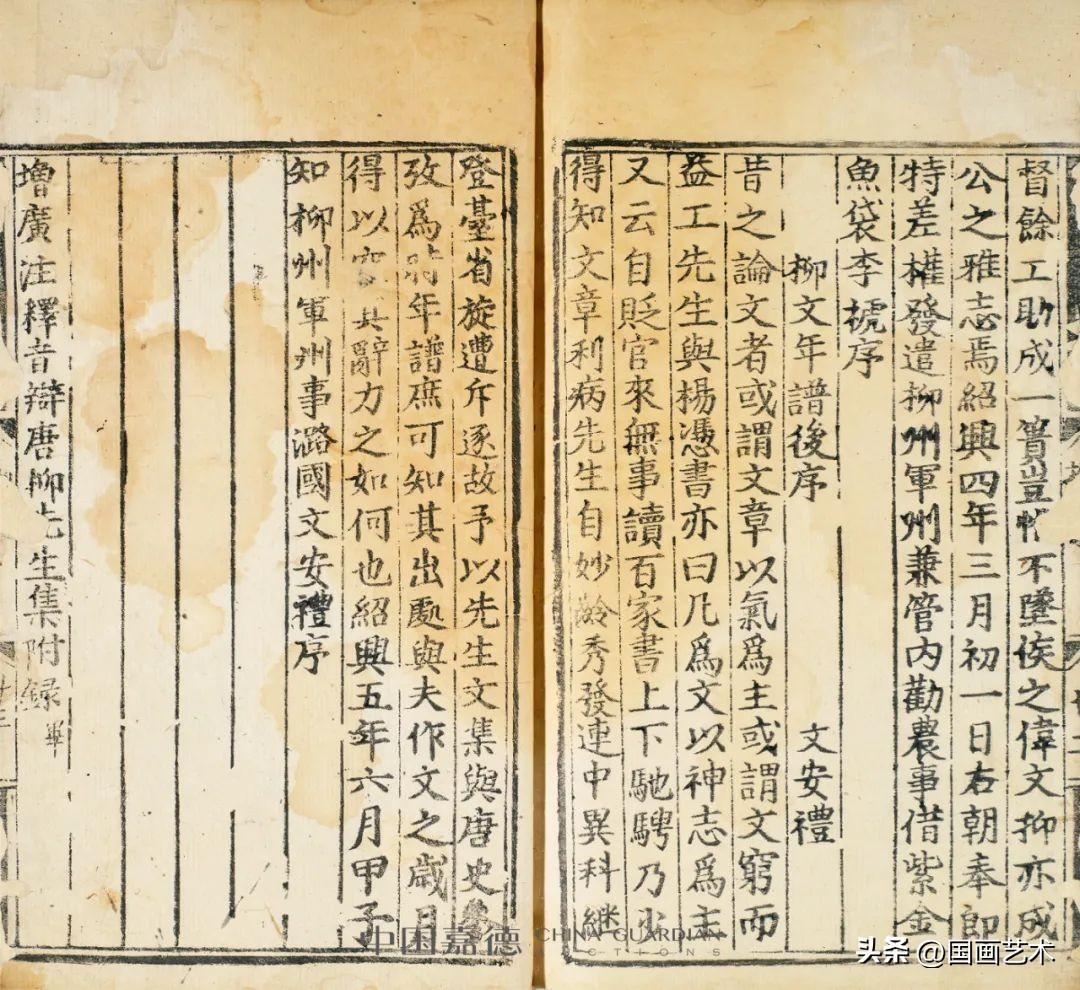 督餘工助成一簣豈不墜侯之偉文抑亦成
公之雅志焉紹興四年三月初一日右朝奉郎
特差權發遣柳州軍州兼管内勸農事借紫金
魚袋李褫序
柳文年譜後序 文安禮
昔之論文者或謂文章以氣爲主或謂文窮而
益工先生與楊憑書亦曰凡爲文以神志爲主
又云自貶官來無事讀百家書上下馳騁乃少
得知文章利病先生自妙齡秀發連中異科継
登臺省旋遭斥逐故予以先生文集與唐史
攷爲時年譜庶可知其出處與夫作文之歲月
得以其辭力之如何也紹興五年六月甲子
知柳州軍州事潞國文安禮序
增廣注釋音辯唐柳先生集附録 畢
中国嘉德 CHINA GUARDIAN
头条 @国画艺术